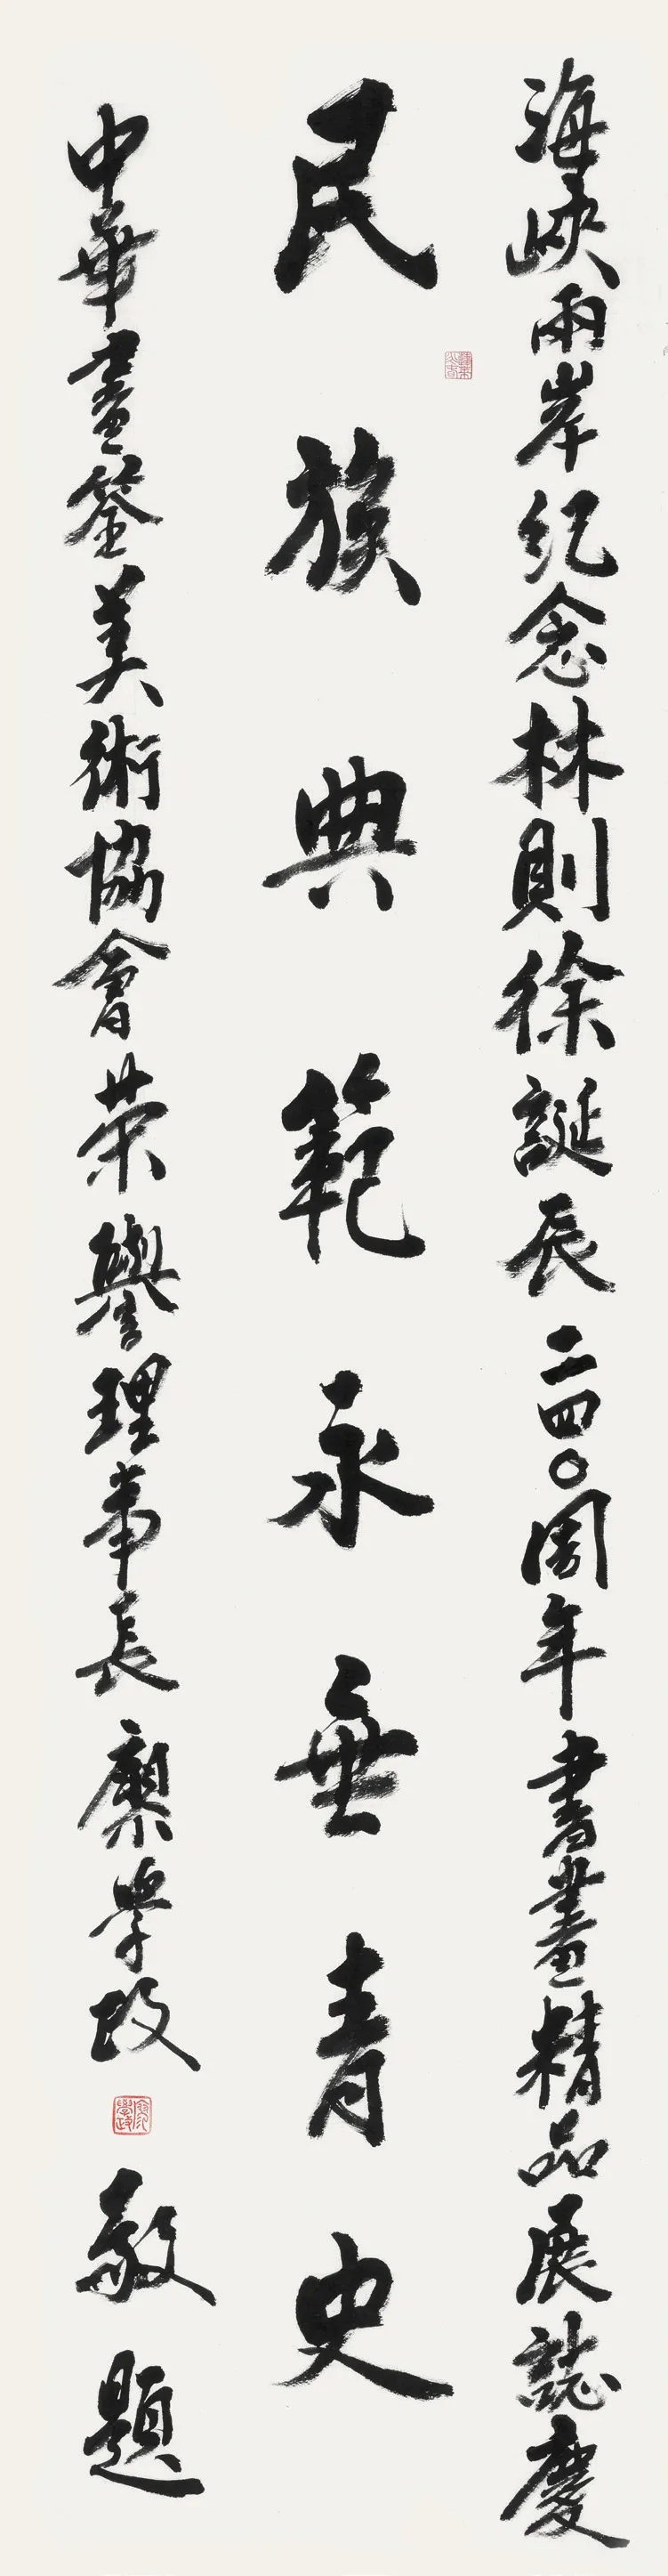 海峽兩岸纪念林則徐誕辰二四〇周年書畫精品展誌慶
民族典範永垂青史
中華畫筌美術協會荣譽理事長廖學政敬題
廖學政